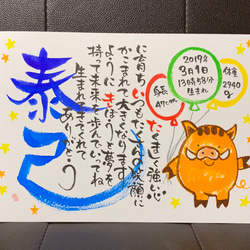 泰己
たくましく強い心
に育ちいつもたくさんの笑顔に
かこまれて大きくなります
ように きぼうと夢を
持って未来へ歩んでいってね
生まれてきてくれて
ありがとう
身長
47cm
2019年
3月9日
13時53分
生まれ
体重
2940
g